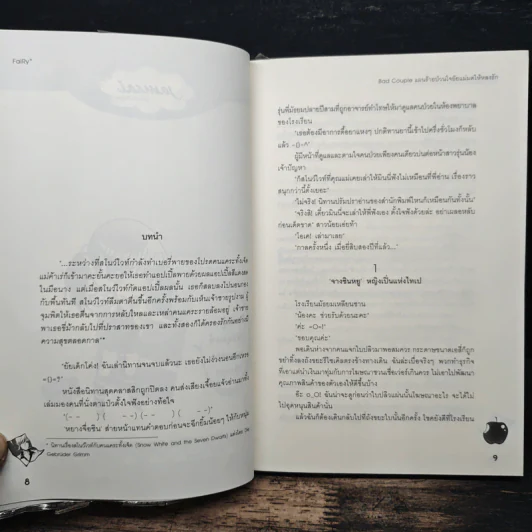 Fairy"
บทนำ
'...ระหว่างที่สโนว์ไวท์กำลังทำเบอรี่พายของโปรดคนแคระทั้งเจ็ด
แม่ค้าเร่ก็เข้ามาคะยั้นคะยอให้เธอทำแอปเปิ้ลพายด้วยผลแอปเปิ้ลสีแดงสด
ในมือนาง แต่เมื่อสโนว์ไวท์กัดแอปเปิ้ลผลนั้น เธอก็สลบลงไปนอน
กับพื้นทันที สโนว์ไวท์ลืมตาตื่นขึ้นอีกครั้งพร้อมกับเห็นเจ้าชายรูปงาม
จุมพิตให้เธอตื่นจากการหลับใหลและเหล่าคนแคระรายล้อมอยู่ เจ้าชาย
พาเธอขี่ม้ากลับไปที่ปราสาทของเขา และทั้งสองก็ได้ครองรักกันอย่างมี
ความสุขตลอดกาล'*
'ยัยเด็กโค่ง! ฉันเล่านิทานจนจบแล้วนะ เธอยังไม่ง่วงนอนอีกเหรอ
=O=!?'
หนังสือนิทานสุดคลาสสิกถูกปิดลง คนส่งเสียงเจื้อยแจ้วอ่านมาทั้ง
เล่มมองคนที่นั่งตาแป๋วตั้งใจฟังอย่างท้อใจ
'หยางจื่อชิน' ส่ายหน้าแทนคำตอบก่อนจะฉีกยิ้มน้อยๆ ให้กับหนุ่ม
* นิทานเรื่องสโนว์ไวท์กับคนแคระทั้งเจ็ด (Snow White and the Seven Dwarfs) แต่งโดย
8
Bad Couple แผนร้ายป่วนใจยัยแม่มดให้หลงรัก
รุ่นพี่มัธยมปลายปีสามที่ถูกอาจารย์ทำโทษให้มาดูแลคนป่วยในห้องพยาบาล
ของโรงเรียน
'เธอต้องมีอาการดื้อยาแหงๆ ปกติทานยานี้เข้าไปครึ่งชั่วโมงก็หลับ
แล้ว -O-^'
ผู้มีหน้าที่ดูแลและตามใจคนป่วยเพียงคนเดียวบ่นต่อหน้าสาวรุ่นน้อง
เจ้าปัญหา
'ก็สโนว์ไวท์ที่คุณแม่เคยเล่าให้มินนี่ฟังไม่เหมือนที่พี่อ่าน เรื่องราว
สนุกกว่านี้ตั้งเยอะ'
'ไม่จริง! นิทานปรัมปราอ่านของสำนักพิมพ์ไหนก็เหมือนกันทั้งนั้น'
'จริงสิ! เดี๋ยวมินนี่จะเล่าให้พี่ฟังเอง ตั้งใจฟังด้วยล่ะ อย่าเผลอหลับ
ก่อนเด็ดขาด' สาวน้อยเอ่ยท้า
'โอเค! เล่ามาเลย'
'กาลครั้งหนึ่ง เมื่อยี่สิบสองปีที่แล้ว...'
1
'จางชินหยู' หญิงเป็นแห่งไทเป
โรงเรียนมัธยมเหลียนซาน
'น้องคะ ช่วยรับด้วยนะคะ'
'ค่ะ =O=!'
'ขอบคุณค่ะ'
พอเดินห่างจากคนแจกใบปลิวมาพอสมควร กระดาษขนาดเอสี่ก็ถูก
ขยำทิ้งลงถังขยะรีไซเคิลตรงข้างทางเดิน
คุณภาพสินค้าของตัวเองให้ดีขึ้นบ้าง
อ๊ะ o_O! ฉันน่าจะดูก่อนว่าใบปลิวแผ่นนั้นโฆษณาอะไร จะได้ไม่
ไปอุดหนุนสินค้านั้น
แล้วฉันก็ต้องเดินกลับไปที่ถังขยะใบนั้นอีกครั้ง โชคยังดีที่โรงเรียน
9